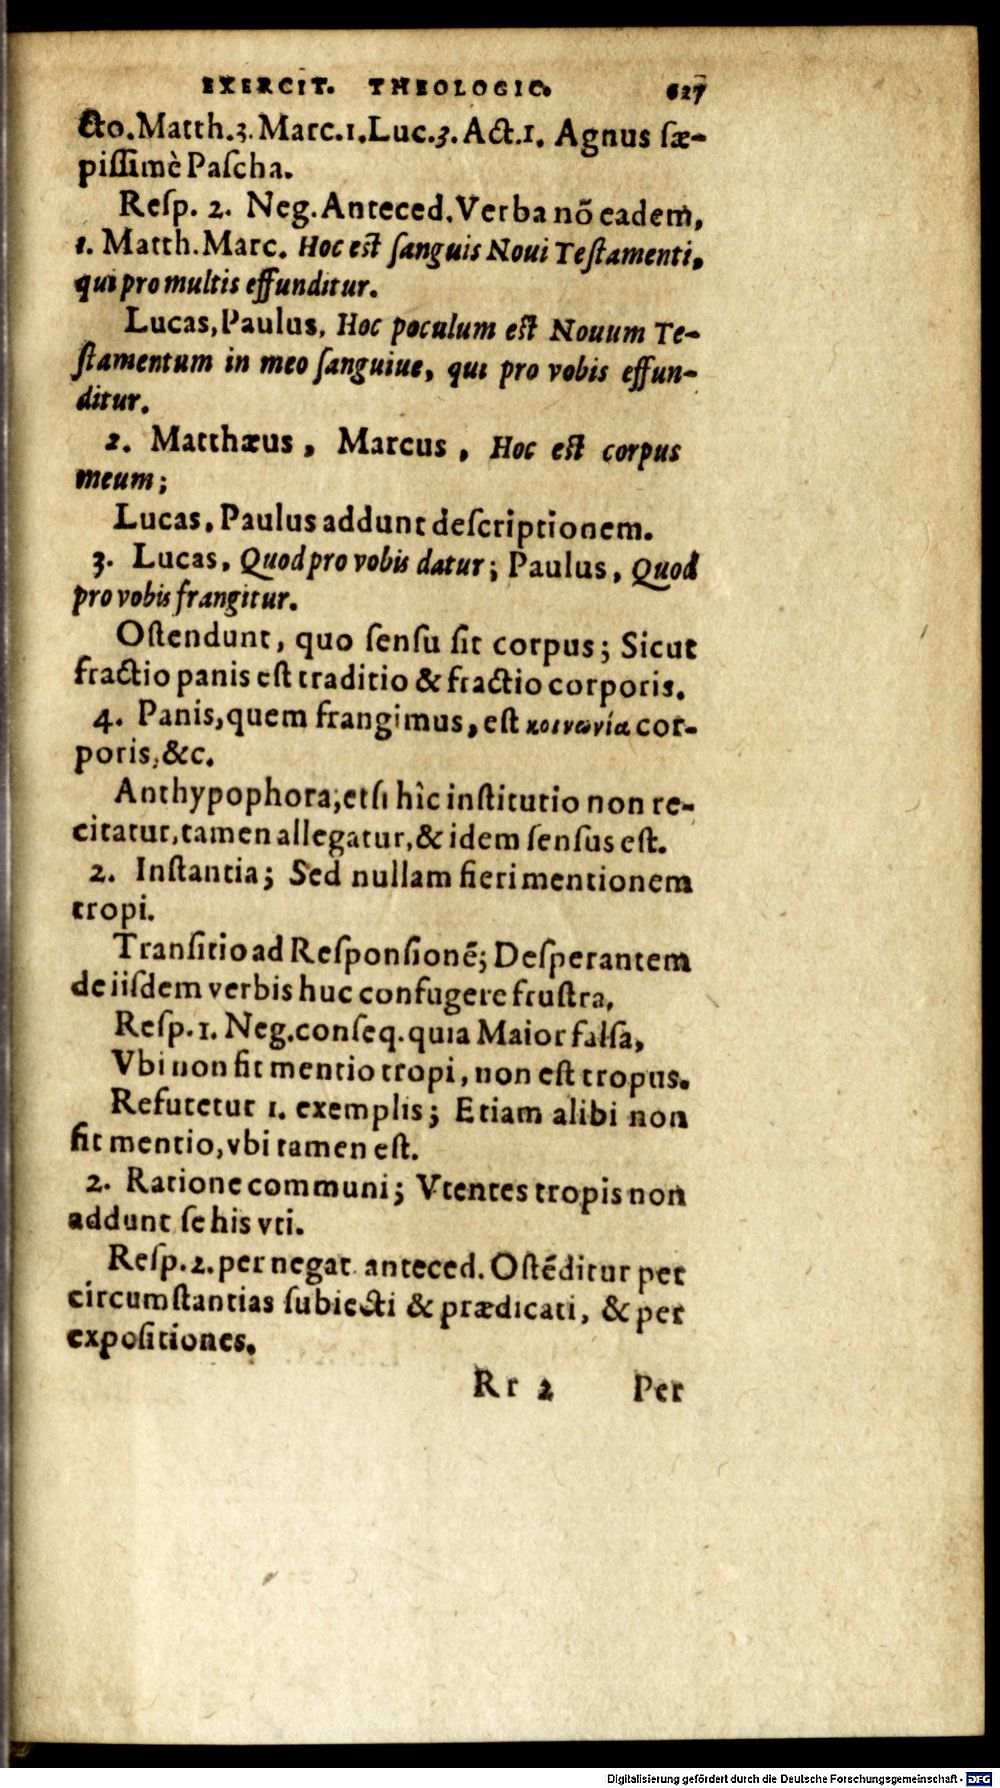 EXERCIT. THEOLOGIC. 627
cto. Matth.3. Marc.1. Luc.3. Act.1. Agnus ſæ-
piſſimè Paſcha.
Reſp. 2. Neg. Anteced. Verba nõ eadem,
1. Matth. Marc. Hoc eſt ſanguis Noui Teſtamenti,
qui pro multis effunditur.
Lucas, Paulus, Hoc poculum eſt Nouum Te-
ſtamentum in meo ſanguiue, qui pro vobis effun-
ditur.
2. Matthæus, Marcus, Hoc eſt corpus
meum;
Lucas, Paulus addunt deſcriptionem.
3. Lucas, Quod pro vobis datur; Paulus, Quod
pro vobis frangitur.
Oſtendunt, quo ſenſu ſit corpus; Sicut
fractio panis eſt traditio & fractio corporis.
4. Panis, quem frangimus, eſt κοινωνία cor-
poris, &c.
Anthypophora; etſi hîc inſtitutio non re-
citatur, tamen allegatur, & idem ſenſus eſt.
2. Inſtantia; Sed nullam fieri mentionem
tropi.
Tranſitio ad Reſponſionẽ; Deſperantem
de iiſdem verbis huc confugere fruſtra,
Reſp. 1. Neg. conſeq. quia Maior falſa,
Vbi non fit mentio tropi, non eſt tropus.
Refutetur 1. exemplis; Etiam alibi non
fit mentio, vbi tamen eſt.
2. Ratione communi; Vtentes tropis non
addunt ſe his vti.
Reſp. 2. per negat. anteced. Oſtẽditur per
circumſtantias ſubiecti & prædicati, & per
expoſitiones.
Rr 2 Per
Digitalisierung gefördert durch die Deutsche Forschungsgemeinschaft - DFG